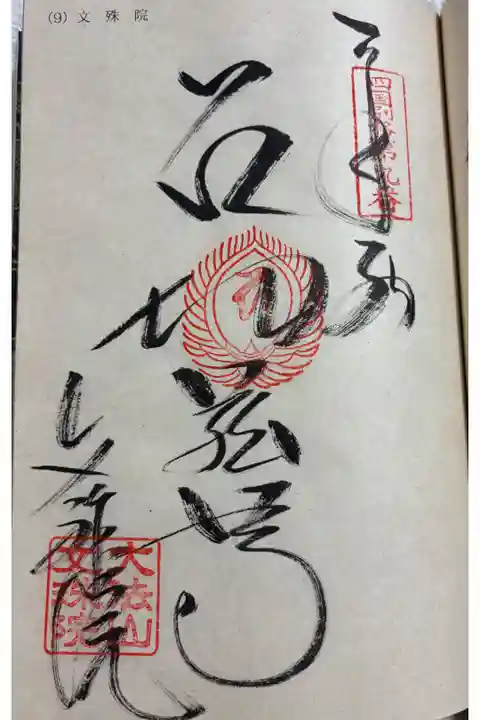 (9) 文殊院
奉納
四国別格第九番
地蔵尊
文殊院
大法山
文殊院